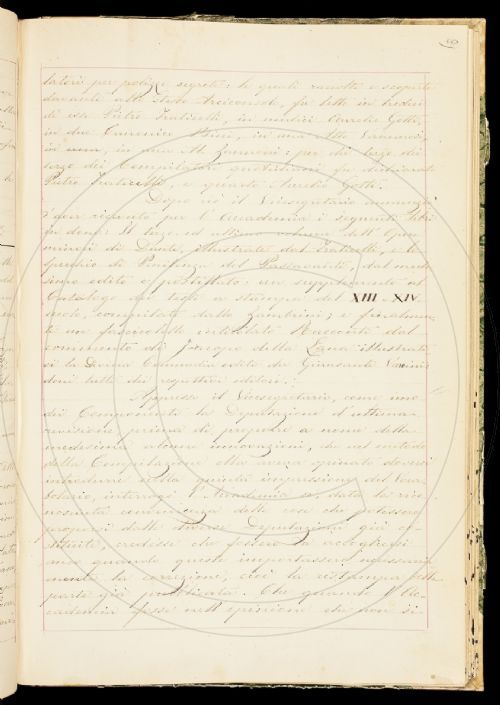 latori per polizze segrete: le quali raccolte e scoperte
davanti allo stesso Arciconsolo, fu letto in tredici
di esse Pietro Fraticelli, in undici Aurelio Gotti,
in due Canonico Bini, in una Atto Vannucci,
in una, in una M. Zannoni: per cui terzo dei
Compilatori quotidiani fu dichiarato
Pietro Fraticelli, e quarto Aurelio Gotti.
Dopo ciò il Vicesegretario annunziò
d'aver ricevuto per l'Accademia i seguenti libri
in dono: Il terzo ed ultimo volume dell' Opere
minori di Dante, illustrate dal Fraticelli, e lo
Specchio di Penitenza del Passavanti, dal mede-
simo edito e postillato: un supplemento al
Catalogo dei testi a stampa del XIII e XIV
secolo, compilato dallo Zambrini; e finalmen-
te un fascicoletto intitolato Racconti dal
comento di Jacopo della Lana illustrati
la Divina Commedia edito da Giansante Varrini
doni tutti dei rispettivi editori.
Appresso il Vicesegretario, come uno
dei Componenti la Deputazione d'ultima
revisione prima di proporre a nome della
medesima alcune innovazioni, che nel metodo
della Compilazione ella aveva opinato doversi
introdurre nella quinta impressione del Voca-
bolario, interrogò l'Accademia se data la rico-
nosciuta convenienza delle cose che potessero
proporsi dalle diverse Deputazioni già co-
stituite, credesse che fossero da accogliersi
anco quando queste importassero necessaria-
mente la correzione, cioè la ristampa della
parte già pubblicata. Che quando l'Ac-
cademia fosse nell'opinione che non si